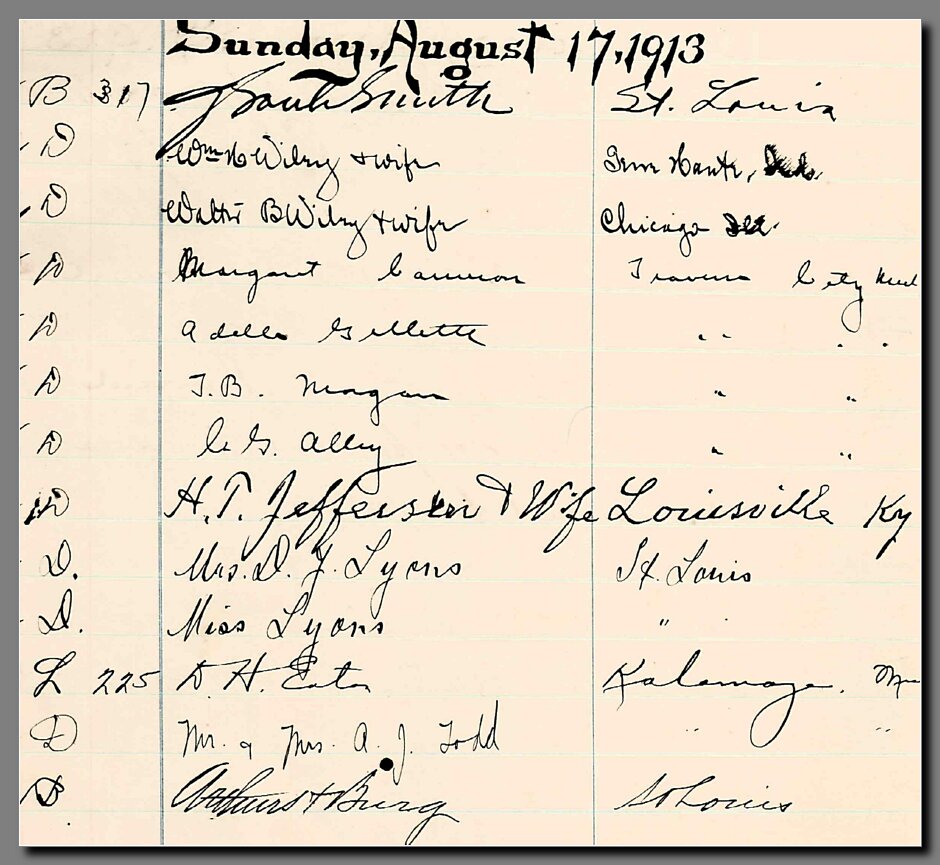 Sunday, August 17, 1913
B 317 Frank Smith St. Louis
D Wm H Wiley & wife Terre Haute, Ind.
D Walter B Wiley & wife Chicago Ill.
D Margaret Cameron Traverse City Mich
D Adella Gillette " "
D T.B. Morgan " "
D C. G. Alley " "
D H.T. Jefferson & Wife Louisville Ky
D. Mrs. D. J. Lyons St. Louis
D. Miss Lyons "
L 225 D. H. Eaton Kalamazoo. Mi
D Mr. & Mrs. A. J. Todd " "
B St Louis